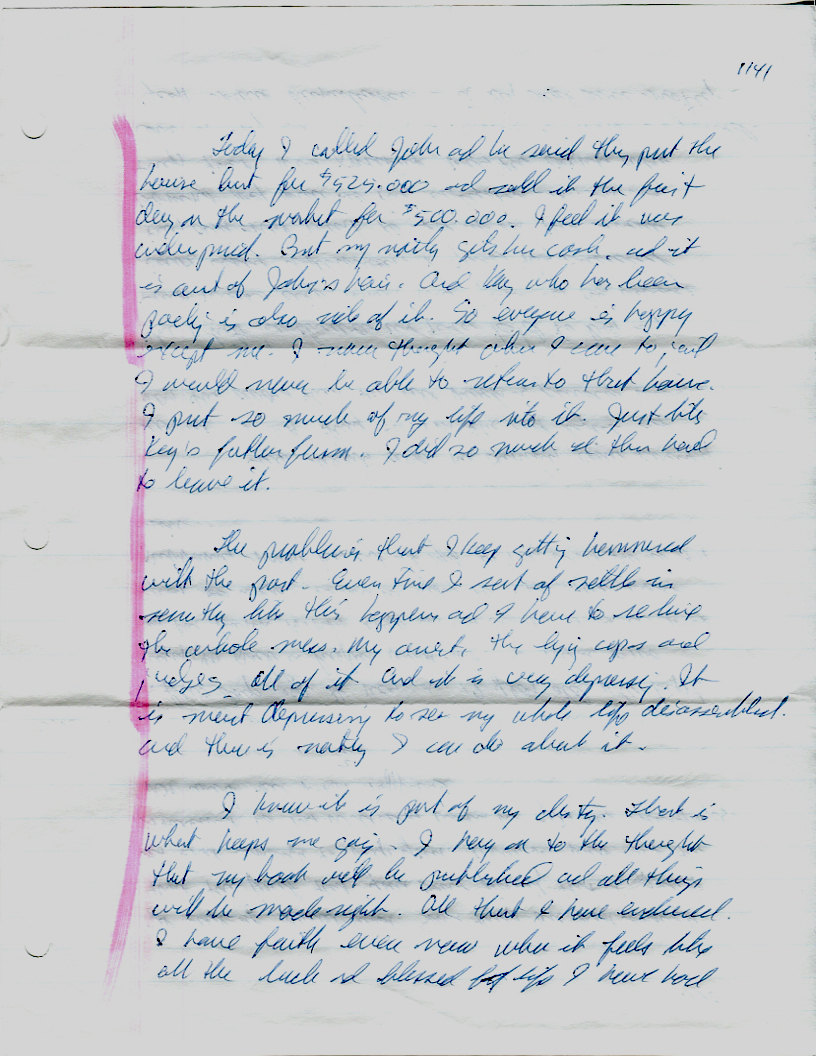 1141
Today I called John ad he said they put the
house but for $525.000 ad sold it the first
day on the market for $500.000. I feel it was
underpriced. But my gets her cash. ad it
is out of John's hair. And Kay who has been
is also rid of it. So everyone is happy
except me. I never thought when I came to jail
I would never be able to return to that house.
I put so much of my life into it. Just like
Kay's father farm. I did so much ad then had
to leave it.
The problem is that I keep getting hammered
with the past. Every time I sort of settle in
something like this happens ad I have to relive
the whole mess. My arrest, the lying cops and
judges all of it. And it is very depressing. It
is most depressing to see my whole life disassembled.
and there is nothing I can do about it.
I know it is part of my destiny. That is
what keeps me going. I hang on to the thought
that my book will be published ad all things
will be made right. All that I have endured.
I have faith even now when it feels like
all the luck ad blessed life I have had